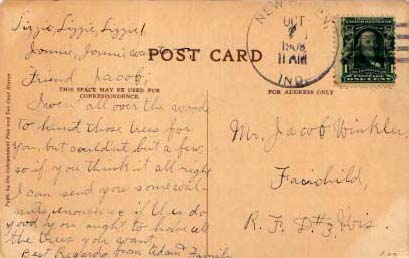 Lizzie, Lizzie, Lizzie!
Jonnie, Jonnie
POST CARD
Friend Jacob;
THIS SPACE MAY BE USED FOR
CORRESPONDENCE
FOR ADDRESS ONLY
I wen all over the wood
to hund those trees for
you, but couldnt but a few
so if you think it all right
I can send you some wal-
nuts, enough if it en do
good you ought to have all
the trees you want.
Best Regards from Adam Family
Mr. Jacob Winkler,
Fairchild,
R. F. D. #2 Wis.
NEW
OCT
7
1908
11 AM
IND.
Pub. by the Independent Five and Ten Cent Stores